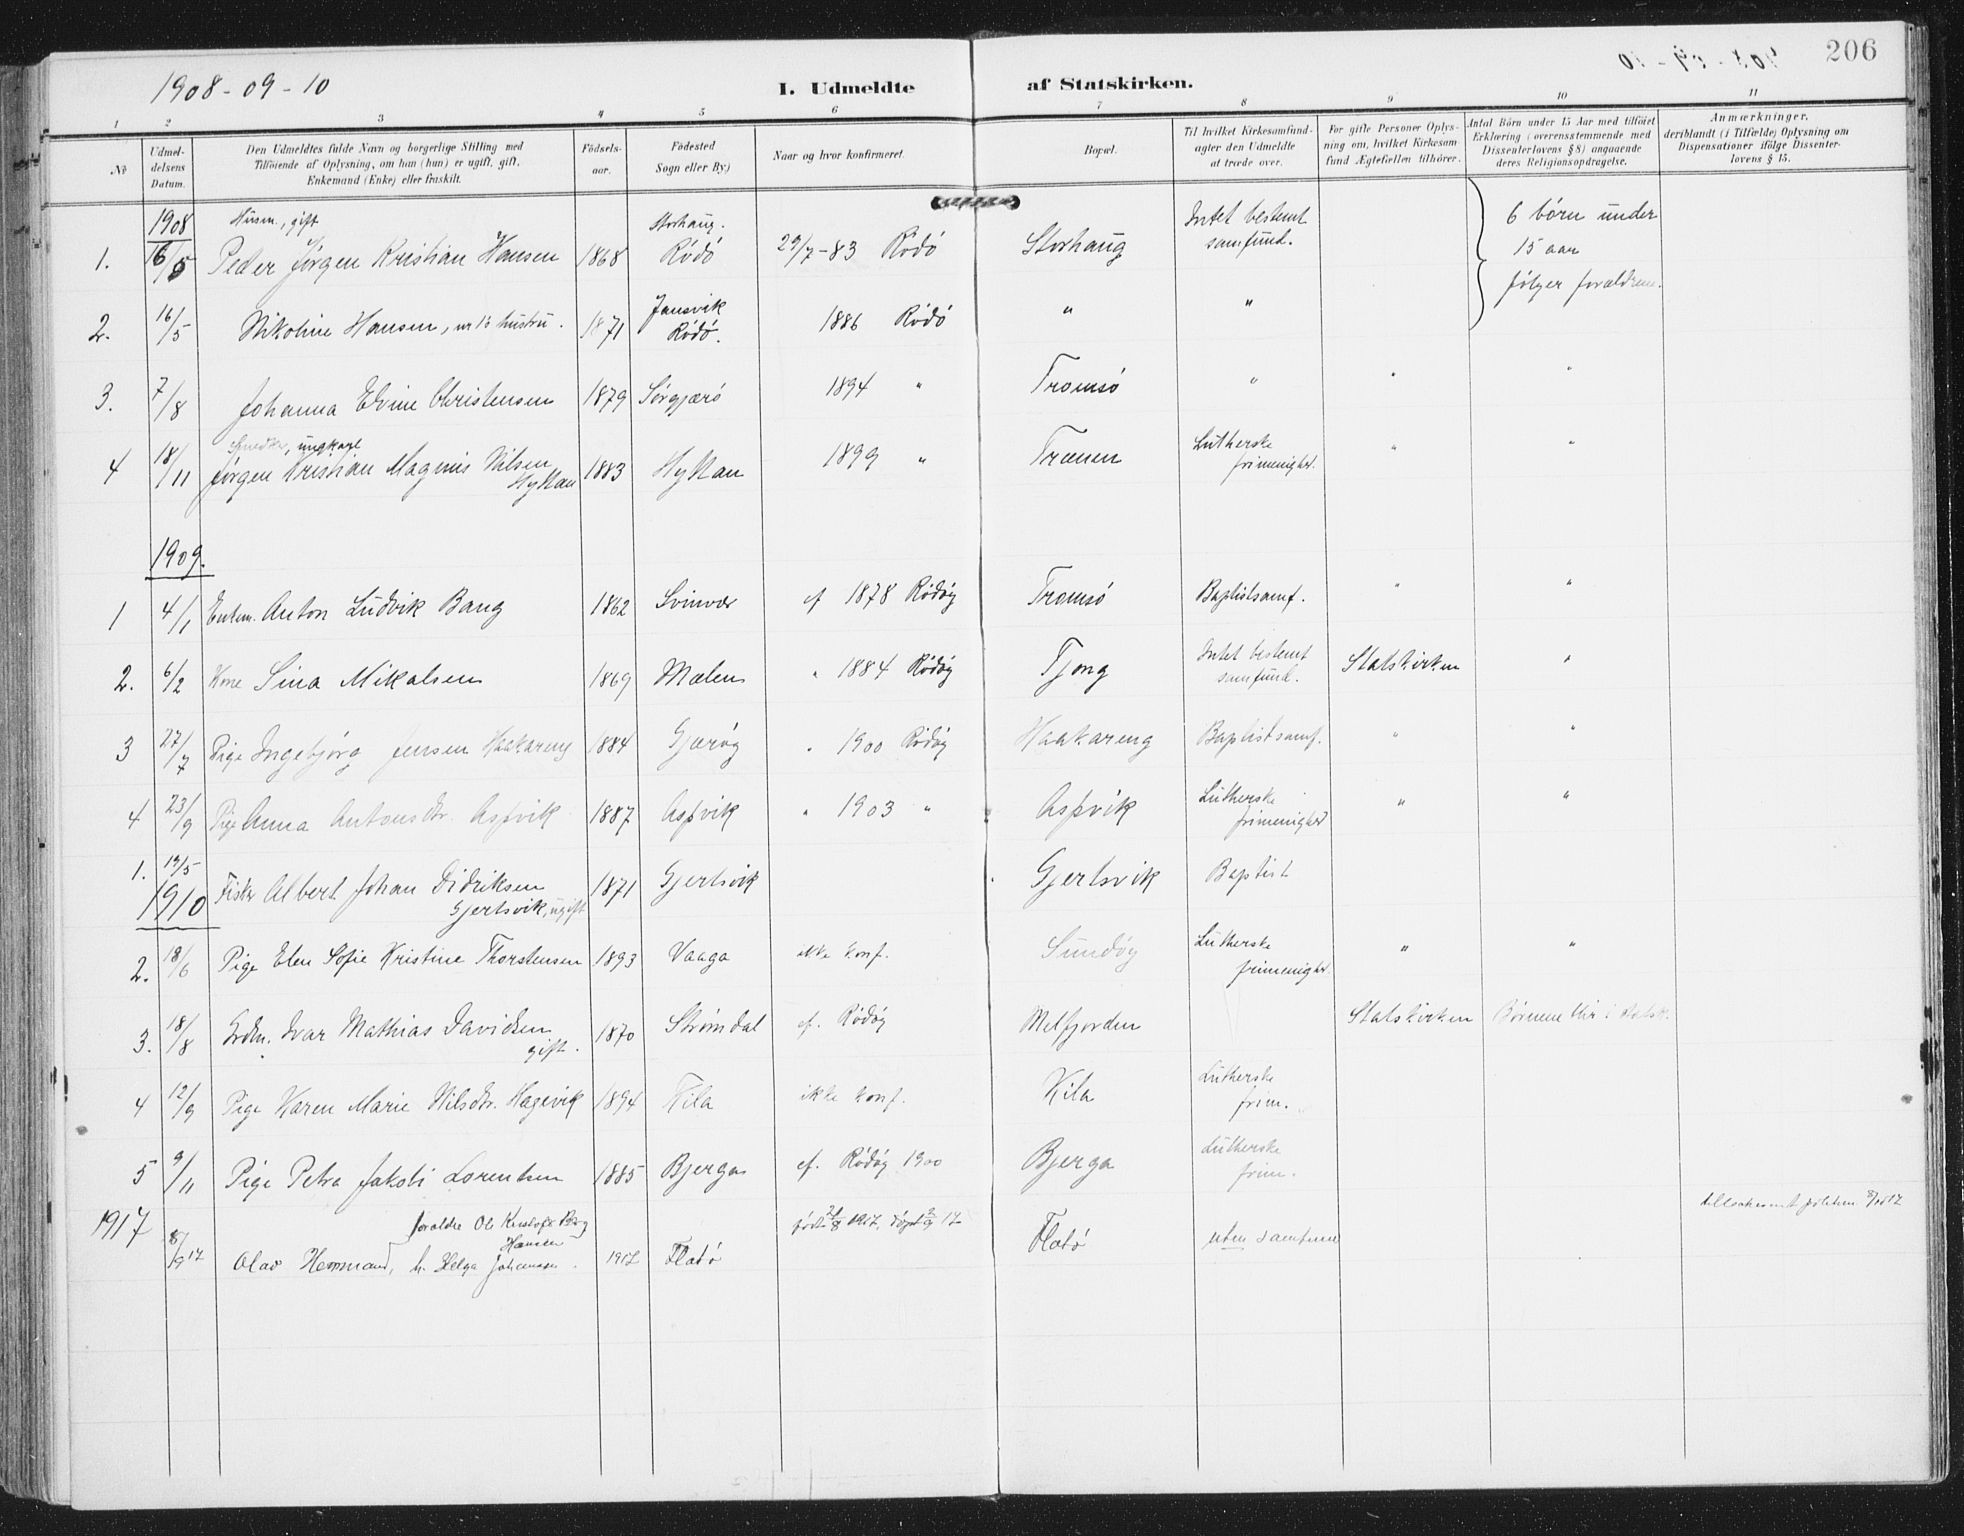 206
1908-09-10
I. Udmeldte af Statskirken.
1 2 3 4 5 6 7 8 9 10 11
No
Udmeldelsens Datum.
Den Udmeldtes fulde Navn og borgerlige Stilling med
Tilføiende af Oplysning, om han (hun) er ugift, gift,
Enkemand (Enke) eller fraskilt.
Fødselsaar.
Fødested
Sogn eller By.)
Naar og hvor konfirmeret.
Bopæl.
Til hvilket Kirkesamfund-
agter den Udmeldte
at træde over.
For gifte Personer Oplys-
ning om, hvilket Kirkesam
fund Ægtefællen tilhører.
Antal Børn under 15 Aar med tilføiet
Erklæring (overensstemmende med
Dissenterlovens § 8) angaaende
deres Religionsopdragelse.
Anmærkninger,
deriblandt (i Tilfælde) Oplysning om
Dispensationer ifølge Dissenter-
lovens § 15.
1908 Husm., gift Storhaug. Intet bestemt 6 børn under
1. 16/5 Peder Jørgen Kristian Hansen 1868 Rödö 29/7-83 Rödö Storhaug samfund. 15 aar
følger forældrene.
Jansvik
2. 16/5 Nikoline Hansen, nr 1s hustru. 1871 Rödö. 1886 Rödö " "
3. 7/8 Johanna Elvine Christensen 1879 Sørgjærö 1894 " Tromsö " " "
Snedker, ungkarl Lutherske
4 18/11 Jørgen Kristian Magnus Nilsen 1883 Hyttan 1899 " Trænen frimenighed. " "
Hyttan
1909.
1 4/1 Enkem. Anton Ludvik Bang 1862 Svinvær cf 1878 Rødøy Tromsö Baptistsamf. " "
2. 6/2 Kone Sina Mikalsen 1869 Mælen " 1884 Rødøy Tjong Intet bestemt samfund. Statskirken "
3 27/7 Pige Ingebjørg Jensen Haakareng 1884 Gjærøy " 1900 Rødøy Haakareng Baptistsamf. " "
4 23/9 Pige Anna Antonsdtr. Aspvik 1887 Aspvik " 1903 " Aspvik Lutherske frimenighed " "
1. 14/5 Fisker Albert Johan Didriksen 1871 Gjertsvik Gjertsvik Baptist
1910 Gjertsvik, ugift
2. 18/6 Pige Elen Sofie Kristine Thorstensen 1893 Vaaga ikke konf. Sundøy Lutherske frimenighed. " "
3. 18/8 Grdm. Ivar Mathias Davidsen 1870 Strømdal cf. Rødøy Melfjorden Statskirken Børnene blir i statsk.
gift.
4 12/9 Pige Karen Marie Nilsdtr. Hagevik 1894 Kila ikke konf. Kila Lutherske frim.
5 9/11 Pige Petra Jakobi Lorentsen 1885 Bjerga cf. Rødøy 1900 Bjerga Lutherske frim.
1917 forældre Ole Kristofer Berg født 21/8 1917, døpt 2/9 17
8/9 17 Olav Hansen
h. Helga Johansen. 1917 Flatø Flatø uten samfund